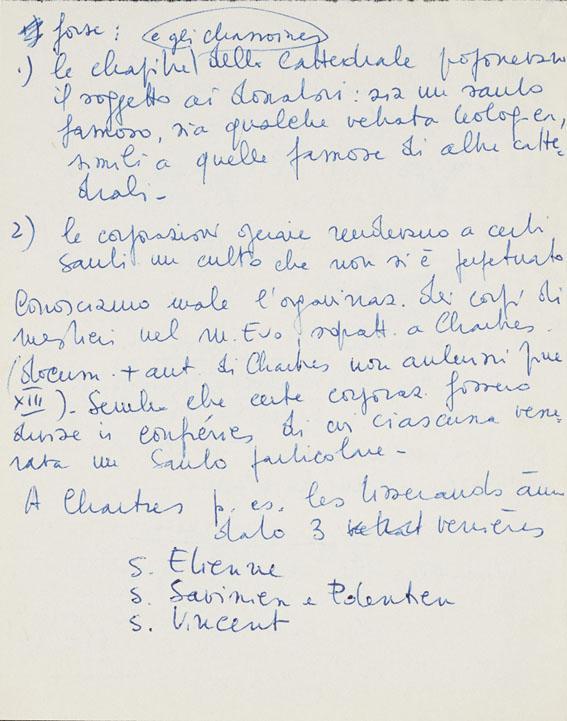 forse: e gli chanoines
1) le chapitre della Cattedrale proponevano
il soggetto ai donatori: sia un santo
famoso, sia qualche vetrata teolog-ca,
simili a quelle famose di altre catte-
drali-
2) le corporazioni operaie rendevano a certi
Santi un culto che non si è perpetuato
Conosciamo male l'organizzaz. dei corpi di
mestieri nel M. Evo, sopratt. a Chartres.
(docum. + ant. di Chartres non anteriori fine
XIII). Sembra che certe corporaz. fossero
divise in confréries di cui ciascuna vene-
rata un Santo particolare-
A Chartres p. es. les tisserands
dato 3 verrières
S. Etienne
S. Savinien e Potentien
S. Vincent